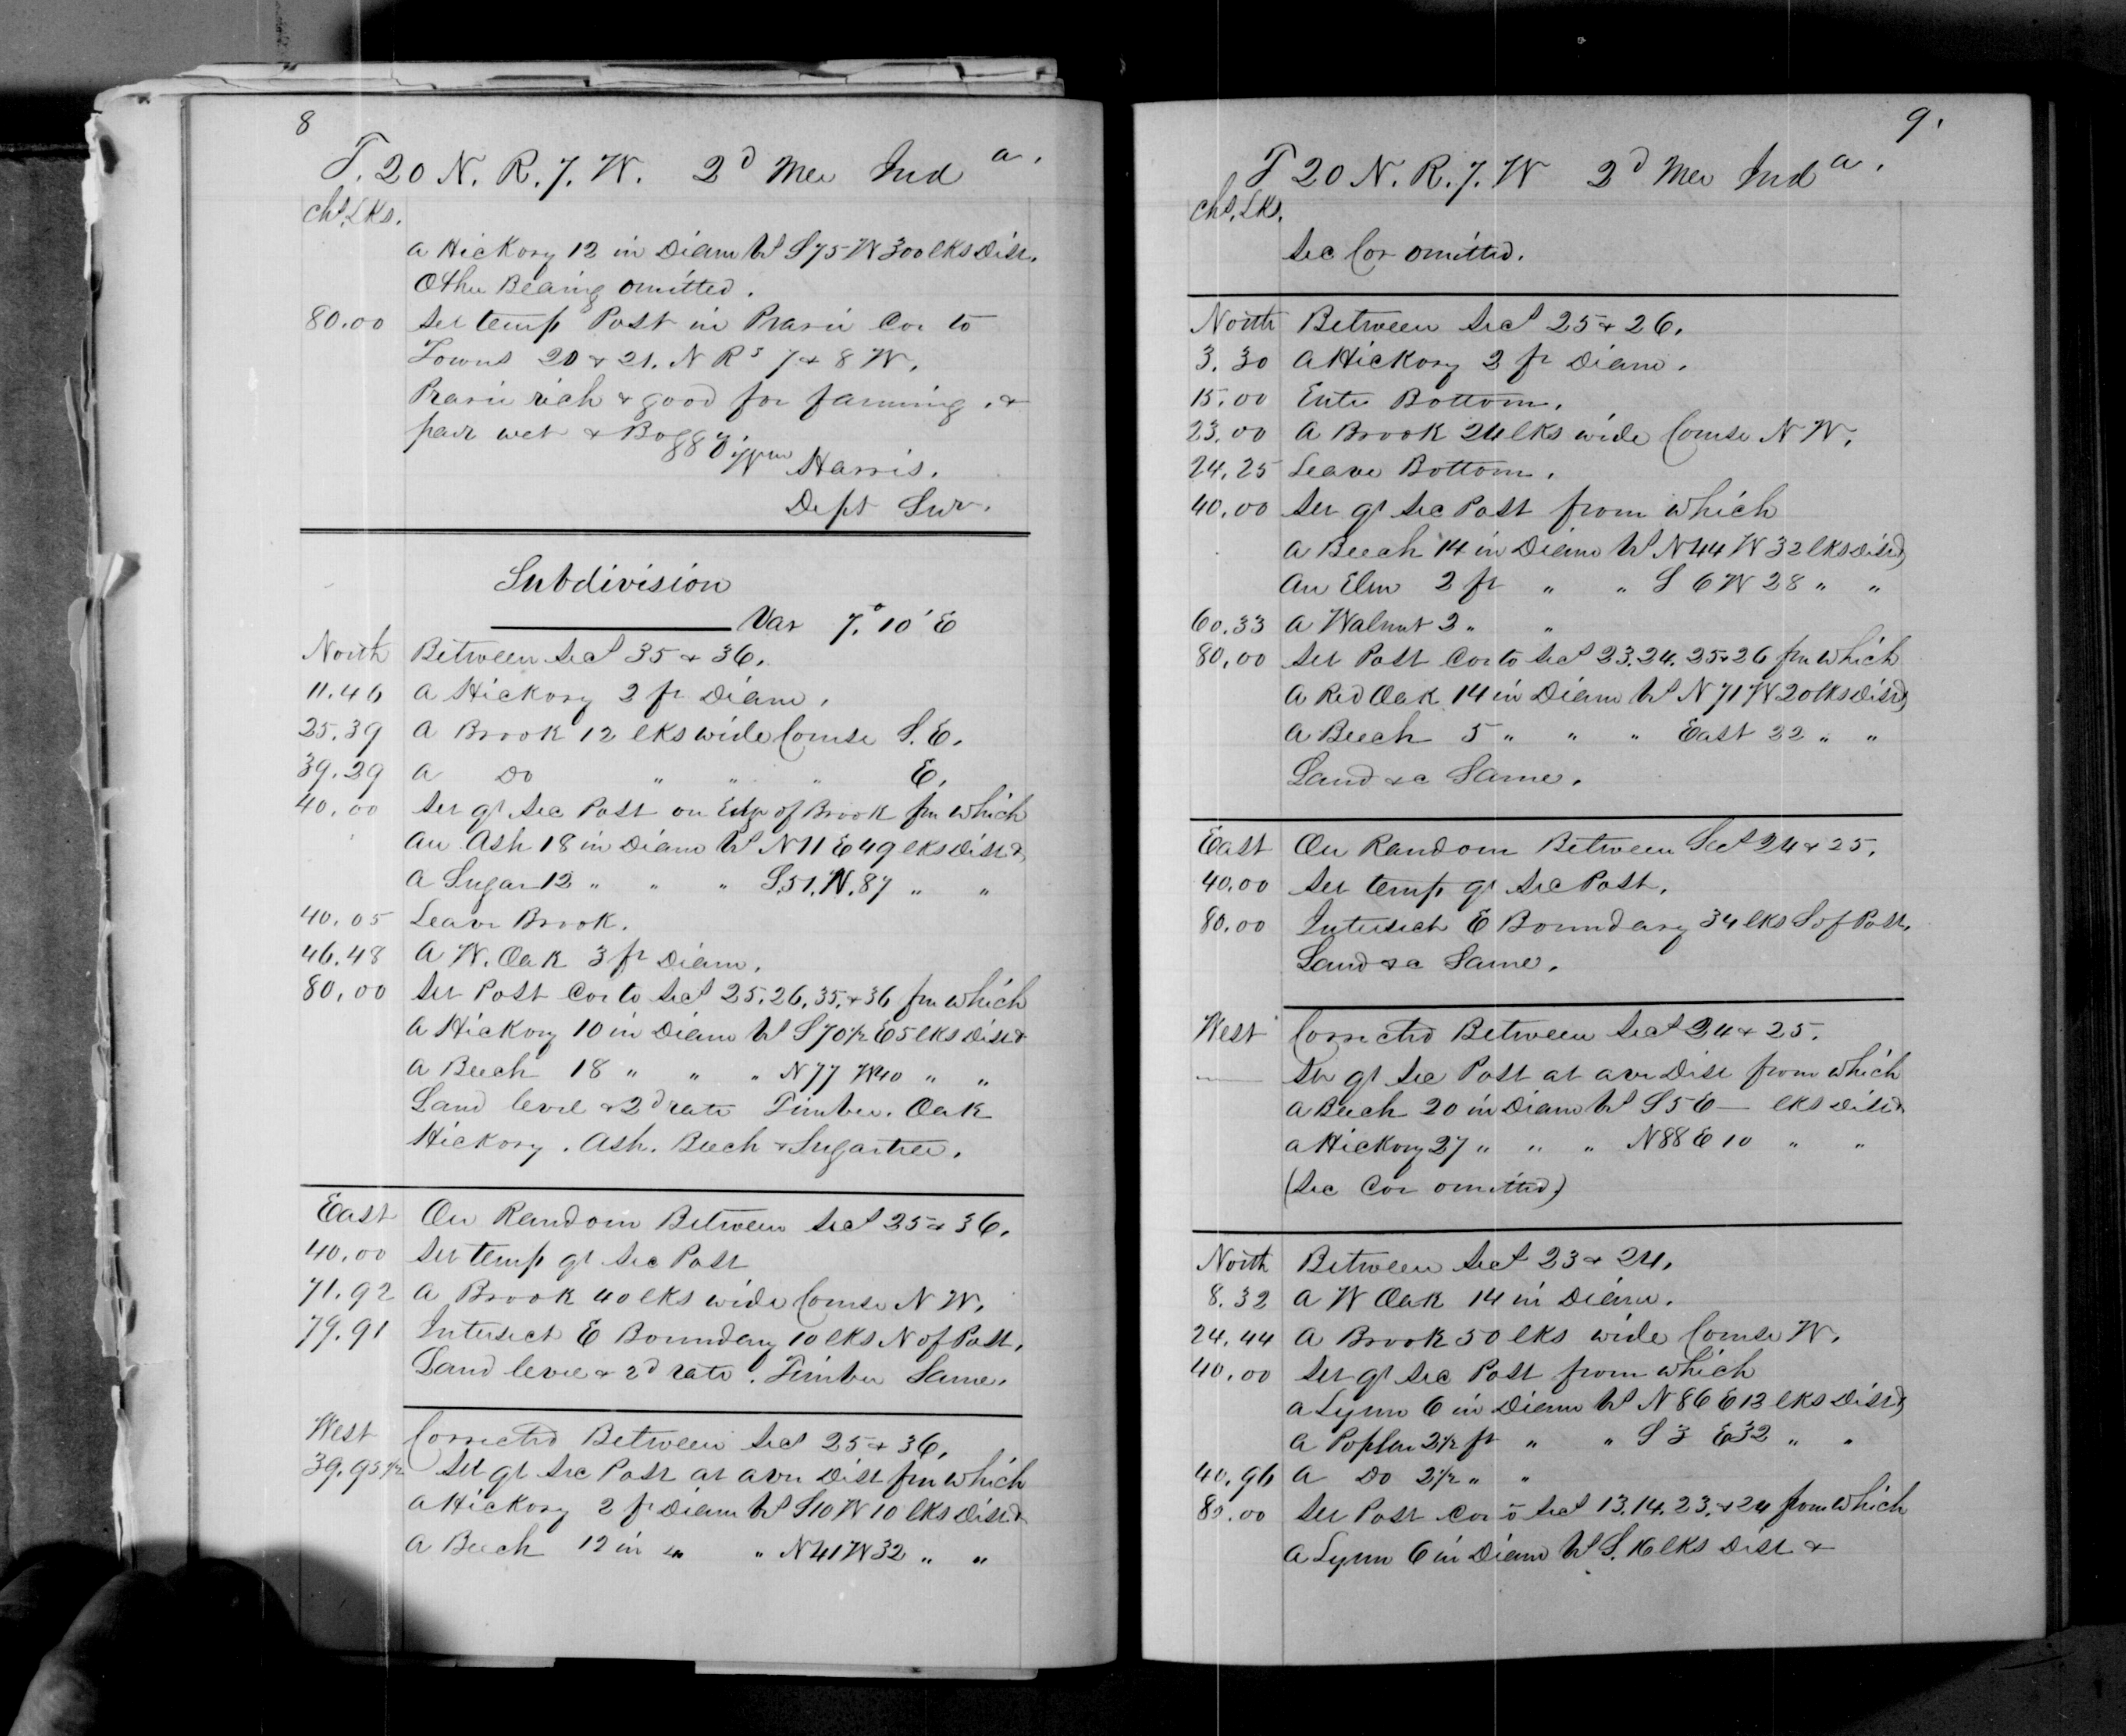 8
T. 20 N. R. 7. W. 2d Mer Inda.
chs. Lks.
a Hickory 12 in Diam bs S 75 W 300 lks Dist.
Other Bearing omitted.
80.00 Set temp Post in Prarie Cor to
Towns 20 & 21. N Rs 7 & 8 W.
Prarie rich & good for farming. &
part wet & Boggy.
Wm Harris.
Dept Sur.
Subdivision
Var 7.° 10' E
North Between Secs 35 & 36.
11.46 a Hickory 2 ft Diam.
25.39 a Brook 12 lks wide Course S. E.
39.29 a Do " " " E.
40.00 Set qr Sec Post on Edge of Brook fm which
an Ash 18 in Diam bs N 11 E 49 lks Dist &
a Sugar 12 " " " S. 51. W. 87 " "
40.05 Leave Brook.
46.48 a W. Oak 3 ft Diam.
80.00 Set Post Cor to Secs 25. 26. 35. & 36 fm which
a Hickory 10 in Diam bs S 70 1/2 E 5 lks Dist &
a Beech 18 " " " N 77 W 40 " "
Land level & 2d rate Timber. Oak
Hickory. Ash. Beech & Sugartree.
East On Random Between Secs 25 & 36.
40.00 Set temp qr Sec Post
71.92 a Brook 40 lks wide Course N W.
79.91 Intersect E Boundary 10 lks N of Post.
Land level & 2d rate. Timber Same.
West Corrected Between Secs 25 & 36.
39.95 1/2 Set qr Sec Post at aver Dist fm which
a Hickory 2 ft Diam bs S 10 W 10 lks Dist &
a Beech 12 in " " N 41 W 32 " "
9.
T 20 N. R. 7. W 2d Mer Inda.
chs. Lks.
Sec Cor omitted.
North Between Secs 25 & 26.
3.30 a Hickory 2 ft Diam.
15.00 Enter Bottom.
23.00 a Brook 24 lks wide Course N W.
24.25 Leave Bottom.
40.00 Set qr Sec Post from which
a Beech 14 in Diam bs N 44 W 32 lks Dist &
an Elm 2 ft " " S 6 W 28 " "
60.33 a Walnut 2 " "
80.00 Set Post Cor to Secs 23. 24. 25 & 26 fm which
a Red Oak 14 in Diam bs N 71 W 20 lks Dist &
a Beech 5 " " " East 22 " "
Land &c Same.
East On Random Between Secs 24 & 25.
40.00 Set temp qr Sec Post.
80.00 Intersect E Boundary 34 lks S of Post.
Land &c Same.
West Corrected Between Secs 24 & 25.
— Set qr Sec Post at aver Dist from which
a Beech 20 in Diam bs S 5 E — lks Dist &
a Hickory 27 " " " N 88 E 10 " "
(Sec Cor omitted)
North Between Secs 23 & 24.
8.32 a W Oak 14 in Diam.
24.44 a Brook 50 lks wide Course W.
40.00 Set qr Sec Post from which
a Lynn 6 in Diam bs N 86 E 13 lks Dist &
a Poplar 2 1/2 ft " " S 3 E 32 " "
40.96 a Do 2 1/2 " "
80.00 Set Post Cor to Secs 13. 14. 23. & 24 from which
a Lynn 6 in Diam bs S. 16 lks Dist &